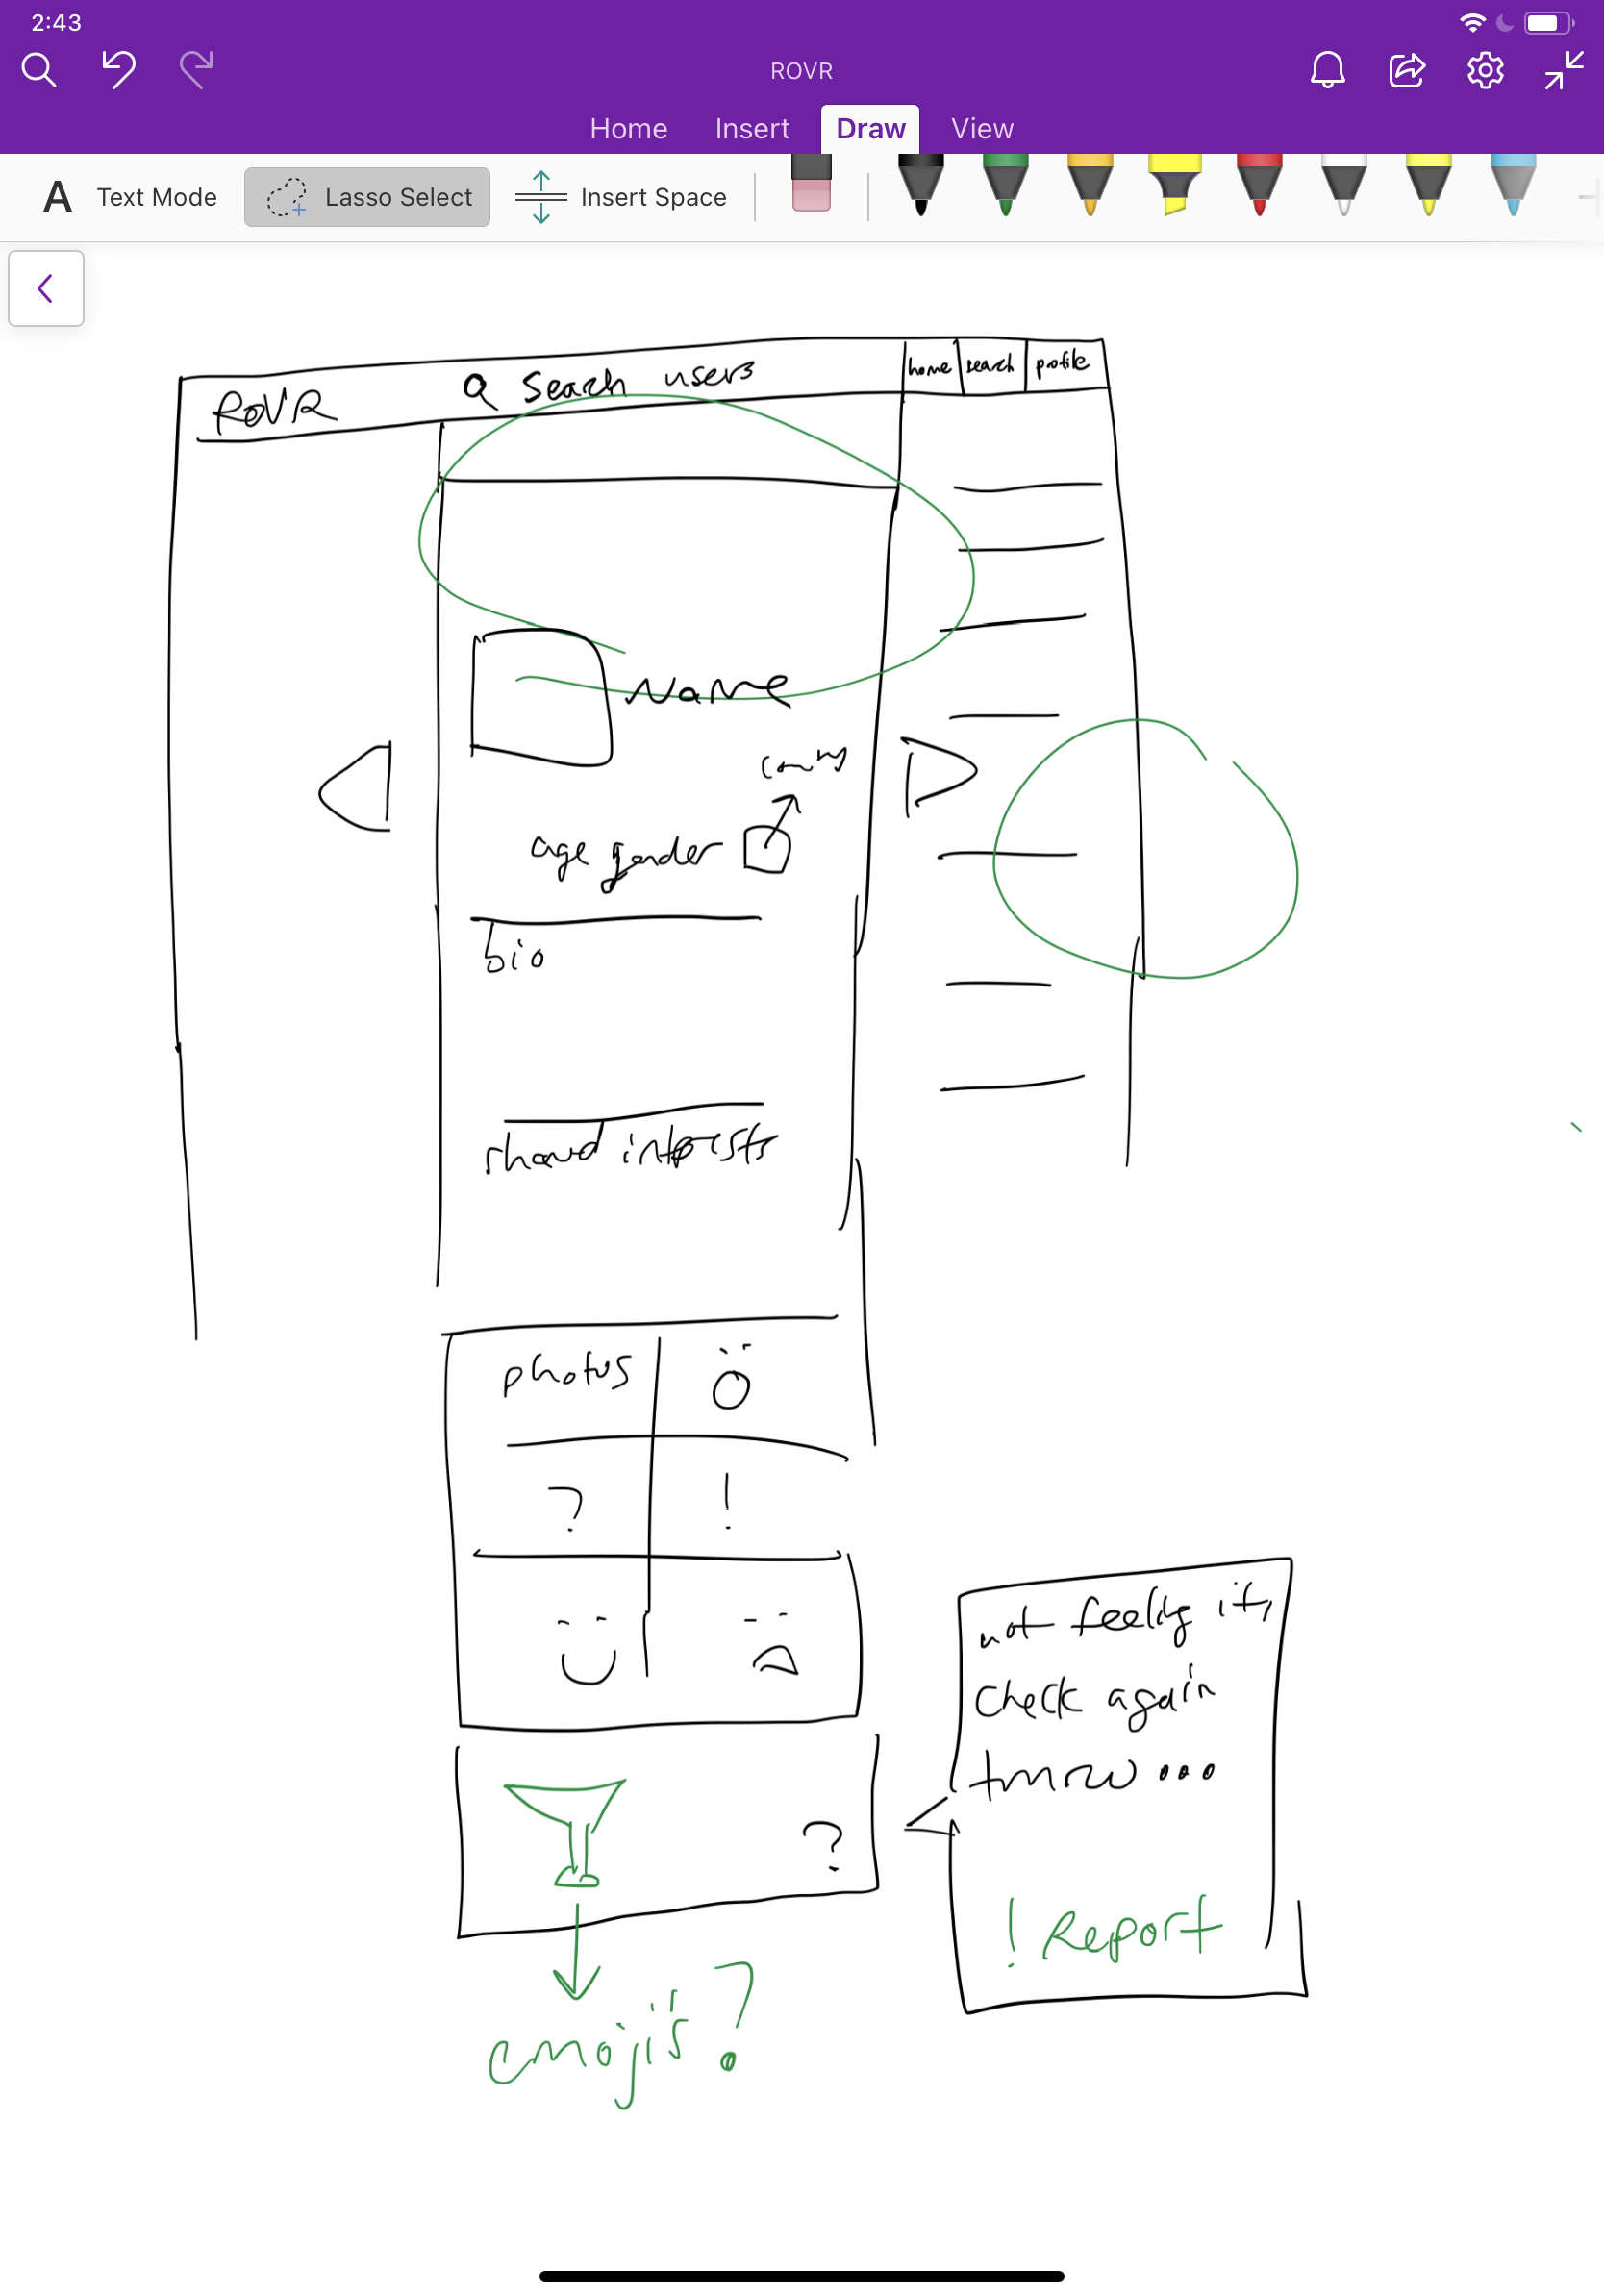 2:43
ROVR
Home Insert Draw View
A Text Mode Lasso Select Insert Space
ROVR Search users home search profile
Name
age gender
bio
shared interests
photos
? !
not feeling it,
check again
tmrw...
?
! Report
emoji's?